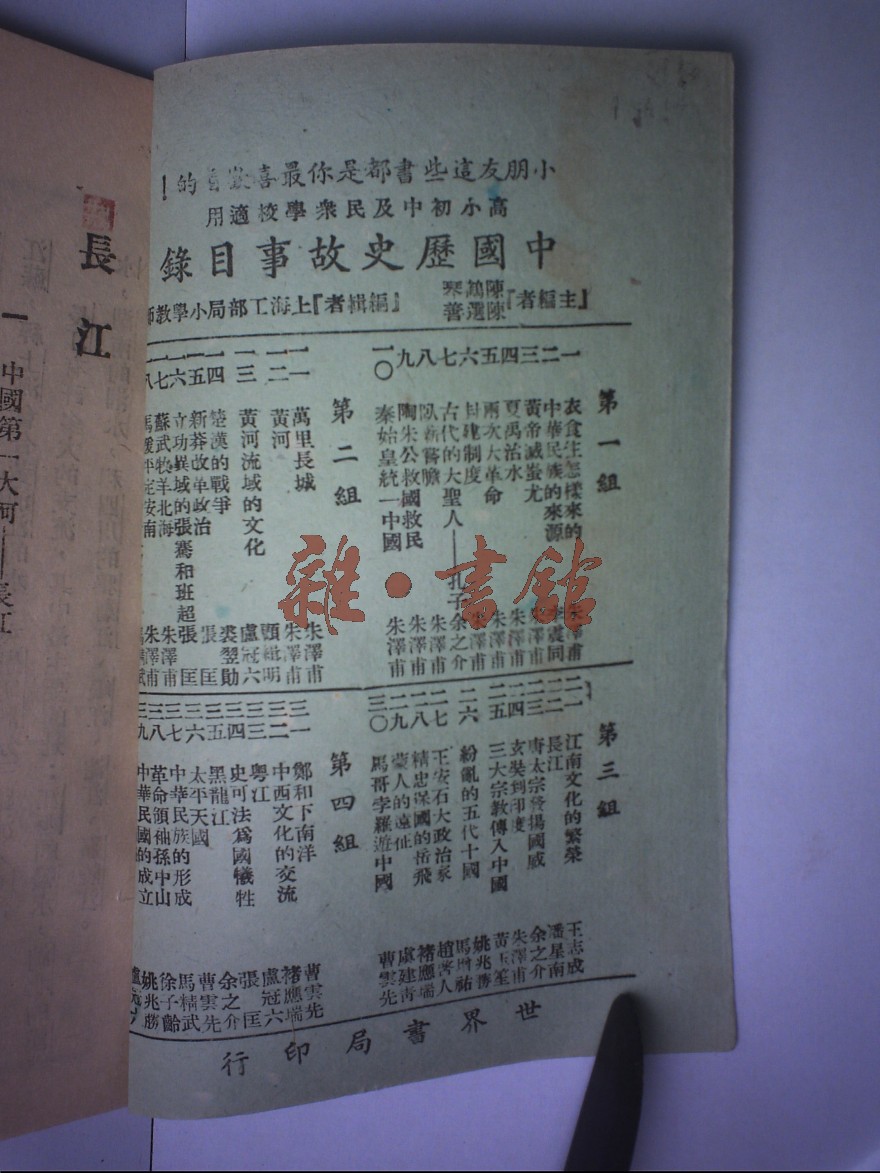 小朋友這些書都是你最喜歡看的!
高小初中及民衆學校適用
中國歷史故事目錄
『主編者』陳鶴琴 陳選善
『編輯者』上海工部局小學教師
第一組
一 衣食住怎樣來的 朱澤甫
二 中華民族的來源 李震同
三 黃帝滅蚩尤 朱澤甫
四 夏禹治水 朱澤甫
五 兩次大革命 朱澤甫
六 封建制度 朱澤甫
七 古代的大聖人——孔子 余之介
八 臥薪嘗膽 朱澤甫
九 陶朱公救國救民 朱澤甫
一〇 秦始皇統一中國 朱澤甫
第二組
一一 萬里長城 朱澤甫
一二 黃河 朱澤甫
一三 黃河流域的文化 盧冠六
一四 楚漢的戰爭 裘翌勛
一五 新莽改革政治 張匡
一六 立功異域的張騫和班超 張匡
一七 蘇武牧羊北海 朱澤甫
一八 馬援平定安南
第三組
二一 江南文化的繁榮 王志成
二二 長江 潘星南
二三 唐太宗發揚國威 余之介
二四 玄奘到印度 朱澤甫
二五 三大宗教傳入中國 黃玉笙
二六 紛亂的五代十國 姚兆勝
二七 王安石大政治家 馬增祐
二八 精忠保國的岳飛 褚應瑞
二九 蒙人的遠征 虞建青
三〇 馬哥孛羅遊中國 曹雲先
第四組
三一 鄭和下南洋 曹雲先
三二 中西文化的交流 褚應瑞
三三 粵江 盧冠六
三四 史可法爲國犧牲 張匡
三五 黑龍江 余之介
三六 太平天國 曹雲先
三七 中華民族的形成 馬精武
三八 革命領袖孫中山 徐子齡
三九 中華民國的成立 姚兆勝
世界書局印行
長江
一 中國第一大河——長江
雜·書館